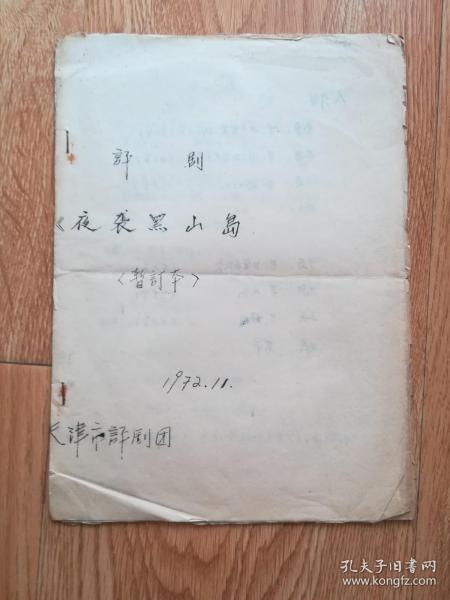 評 剧
《夜袭黑山岛
〈暫訂本〉
1972.11.
天津市評剧团
孔夫子旧书网
www.kongfz.com